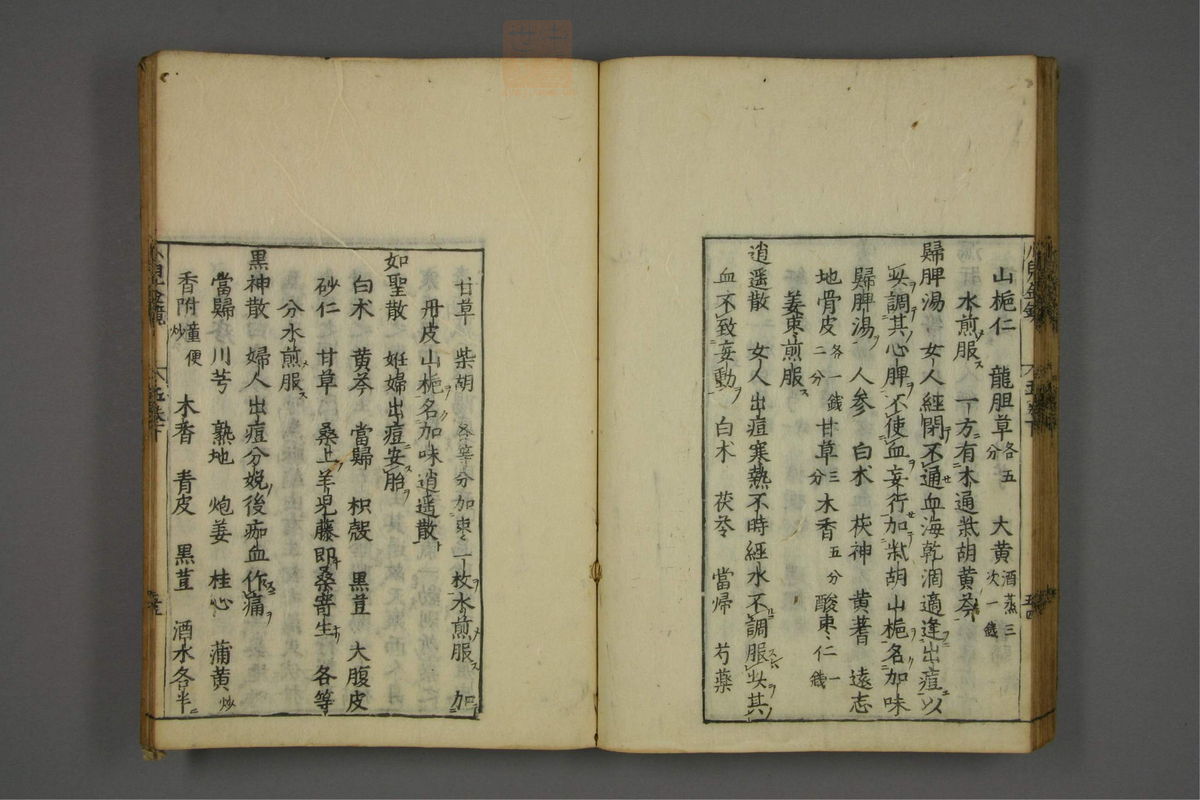 山梔仁 龍胆草各五分 大黄酒蒸三次一錢
水煎服ス 一方ニ有木通柴胡黄芩
歸脾湯 女人經閉不通血海乾涸適逢出痘以
安調其心脾不使血妄行加柴胡山梔名加味
歸脾湯 人参 白朮 茯神 黄蓍 遠志
地骨皮各一錢二分 甘草三分 木香五分 酸棗仁一錢
姜棗煎服ス
逍遥散 女人出痘寒熱不時經水不調服此其
血不致妄動 白朮 茯苓 當帰 芍薬
甘草 柴胡各等分加棗一枚水煎服 加
丹皮山梔名加味逍遥散
如聖散 姙婦出痘安胎
白朮 黄芩 當歸 枳殻 黒荳 大腹皮
砂仁 甘草 桑上羊児藤即桑寄生 各等
分水煎服ス
黒神散 婦人出痘分娩後痂血作痛
當歸 川芎 熟地 炮姜 桂心 蒲黄炒
香附童便炒 木香 青皮 黒荳 酒水各半